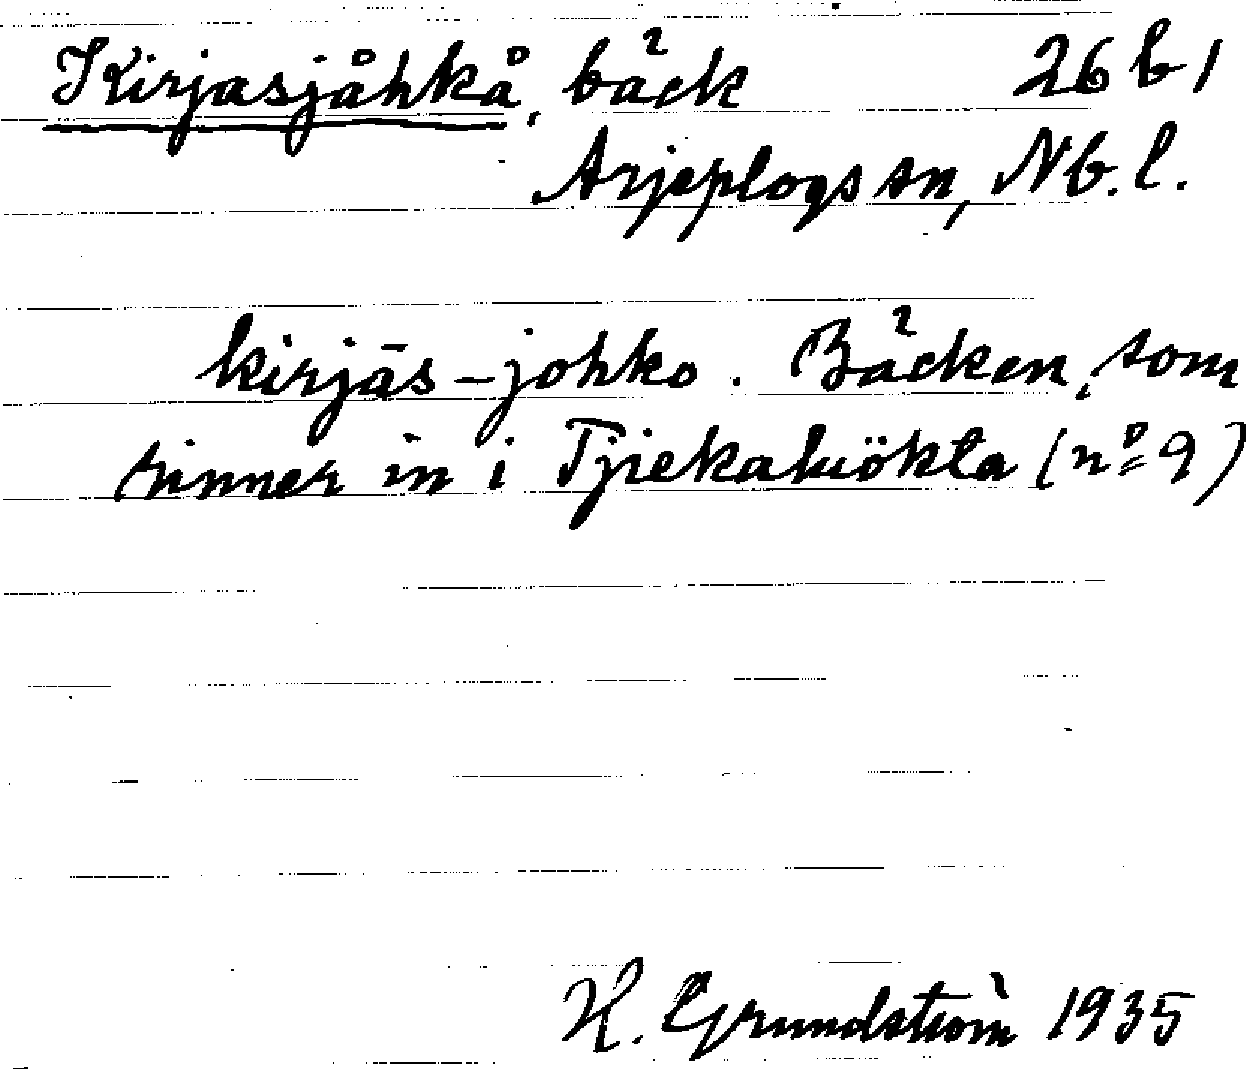 Kirjasjåhkå, bäck 26 b 1
Arjeplogs sn, Nb. l.
kirjās-johko. Bäcken, som
rinner in i Tjiekaluökta (nº 9)
H. Grundström 1935